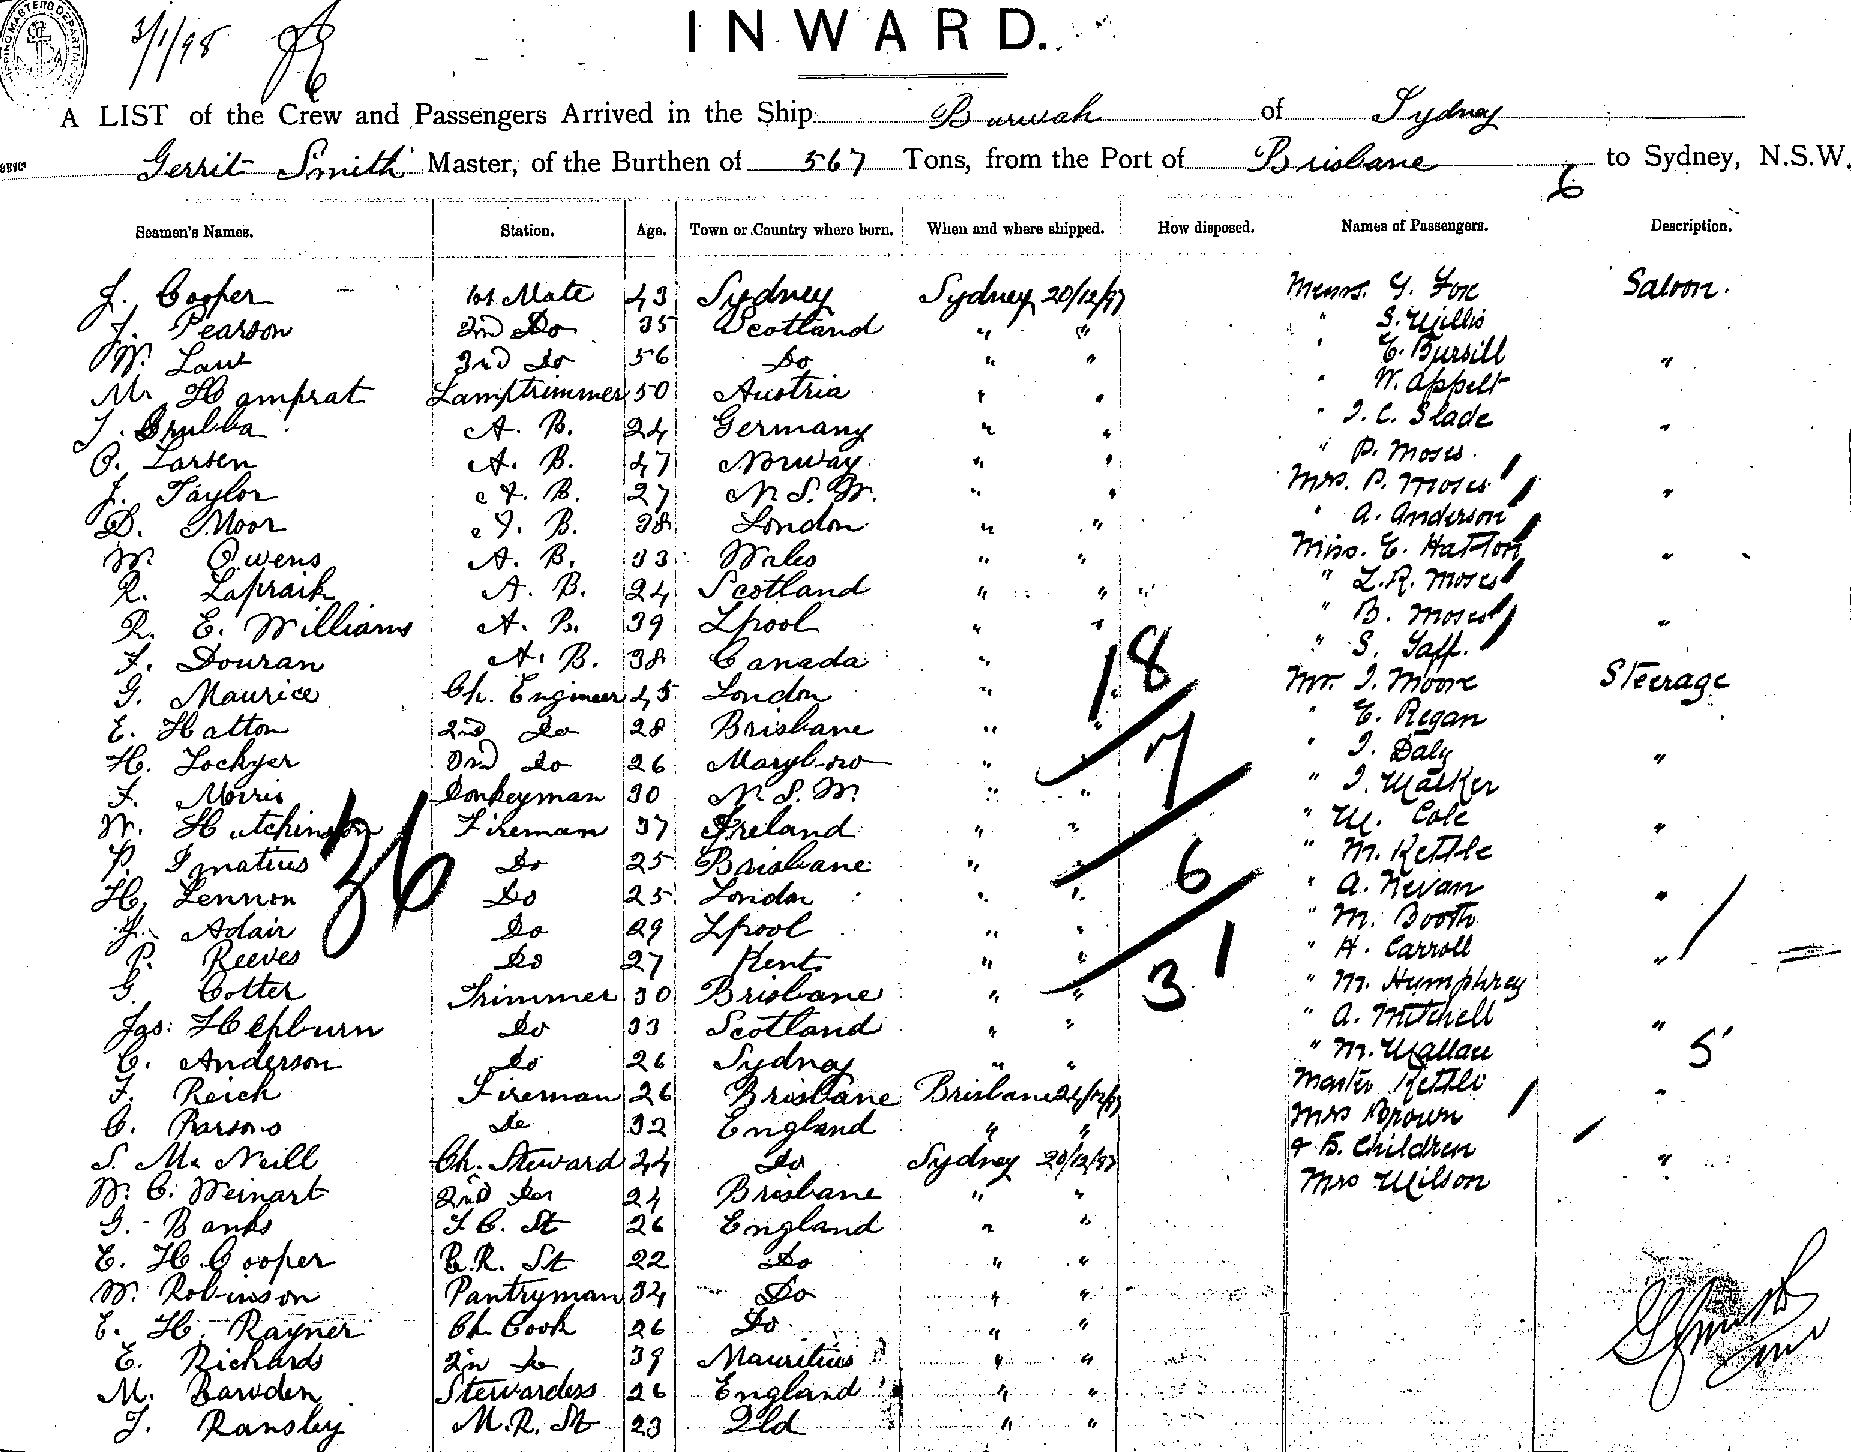 3/1/98
INWARD.
A LIST of the Crew and Passengers Arrived in the Ship Burwah of Sydney
Gerrit Smith Master, of the Burthen of 567 Tons, from the Port of Brisbane to Sydney, N.S.W.
6
Seamen's Names. Station. Age. Town or Country where born. When and where shipped. How disposed. Names of Passengers. Description.
J. Cooper 1st Mate 43 Sydney Sydney 20/12/97 Messrs. G. Fox Saloon.
J. Pearson 2nd Do 35 Scotland " " " S. Willis
W. Laut 3rd Do 56 Do " " " E. Bursill "
M. Hamprat Lamptrimmer 50 Austria " " " W. Appelt
J. Grubba A. B. 24 Germany " " " J. C. Slade "
O. Larsen A. B. 47 Norway " " " P. Moses
J. Taylor A. B. 27 N. S. W. " " Mrs. P. Moses "
D. Moor A. B. 38 London " " " A. Anderson
W. Owens A. B. 33 Wales " " Miss. E. Hatton "
R. Lapraik A. B. 24 Scotland " " " L. R. Moses
R. E. Williams A. B. 39 Lpool " " " B. Moses "
F. Douran A. B. 38 Canada " " S. Gaff.
G. Maurice Ch. Engineer 45 London " Mr. J. Moore Steerage
E. Hatton 2nd Do 28 Brisbane " " " E. Regan
H. Lockyer 3rd Do 26 Marylboro " " " J. Daly "
F. Morris Donkeyman 30 N. S. W. " " " J. Walker
W. Hutchinson Fireman 37 Ireland " " " W. Cole "
P. Ignatius Do 25 Brisbane " " " M. Kettle
H. Lennon Do 25 London " " " A. Nevan "
J. Adair Do 29 Lpool " " " M. Booth
P. Reeves Do 27 Kent " " " H. Carroll "
G. Cotter Trimmer 30 Brisbane " " " M. Humphrey
Jas: Hepburn Do 33 Scotland " " " A. Mitchell "
C. Anderson Do 26 Sydney " " " M. Wallace
F. Reich Fireman 26 Brisbane Brisbane 24/12/97 Master Kettle "
C. Parsons Do 32 England " " Mrs Brown
S. Mc Neill Ch. Steward 44 Do Sydney 20/12/97 & 5. Children "
W. C. Weinart 2nd Do 24 Brisbane " " Mrs Wilson
G. Banks F. C. St 26 England " "
E. H. Cooper B.R. St 22 Do " "
W. Robinson Pantryman 34 Do " "
E. H. Rayner Ch. Cook 26 Do " "
E. Richards 2n Do 39 Mauritius " "
M. Bawden Stewardess 26 England " "
J. Ransley M.R. St 23 Qld " "
36
18
7
6
31
1
5